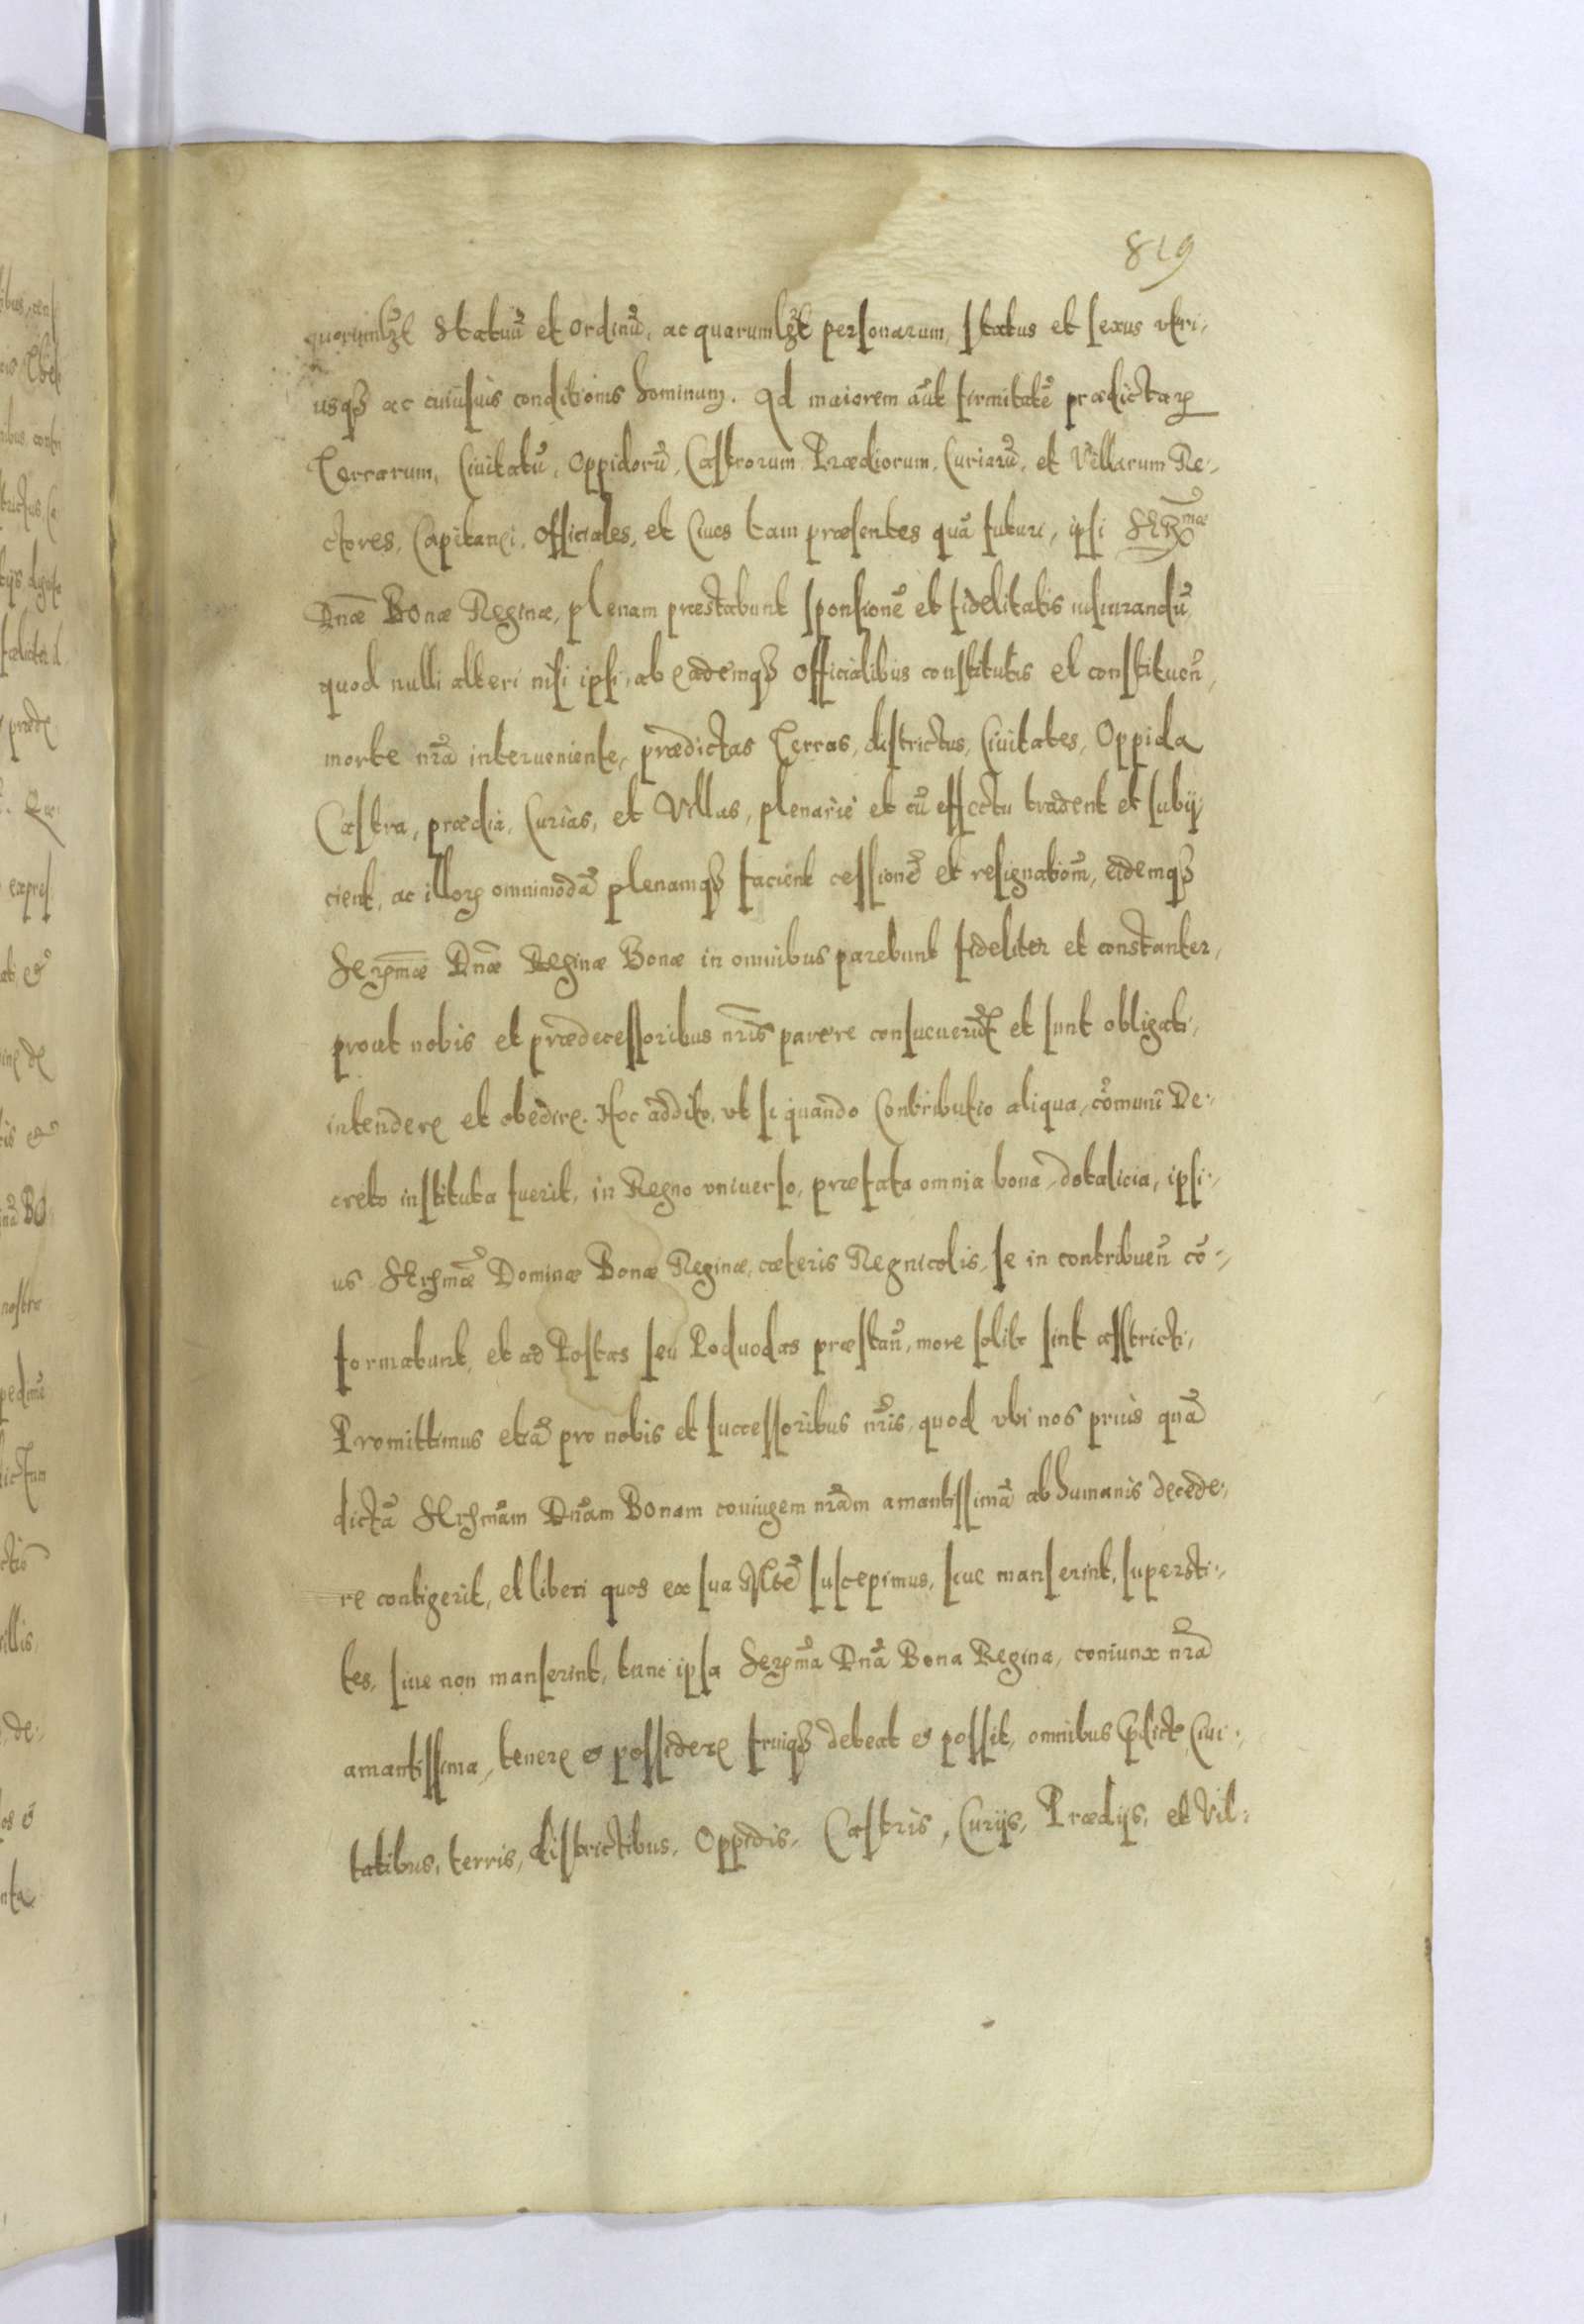 819
quorumlꝫt Statuū et ordinū, ac quarumlꝫt personarum, status et sexus vtri⸗
usqꝫ ac cuiusuis conditionis hominum. Ad maiorem aūt firmitatē prædictaꝝ
Terrarum, Ciuitatū, Oppidorū, Castrorum Prædiorum, Curiarū, et Villarum Re⸗
ctores, Capitanei, Officiales, et Ciues tam præsentes quā futuri, ipsi
Dnæ Bonæ Reginæ, plenam præstabunt sponsionē et fidelitatis iusiurandū,
quod nulli alteri nisi ipsi, ab eademqꝫ Officialibus constitutis et constituen̄,
morte nrā interueniente, prædictas Terras, districtus, Ciuitates, Oppida
Castra, prædia, Curias, et Villas, plenariè et cū effectu tradent et subij
cient, ac illoꝝ omnimodā plenamqꝫ facient cessionē et resignationē, eidemqꝫ
Serꝫmæ Dnæ Reginæ Bonæ in omnibus parebunt fideliter et constanter,
prout nobis et prædecessoribus nris parere consueuerūt et sunt obligati,
intendere et obedire. Hoc addito, vt si quando Contributio aliqua, cōmuni De⸗
creto instituta fuerit, in Regno vniuerso, præfata omnia bona dotalicia, ipsi⸗
us Serꝫmæ Dominæ Bonæ Reginæ, cæteris Regnicolis, se in contribuen̄ cō⸗
formabunt, et ad Postas seu Poduodas præstan̄, more solito sint astricti,
Promittimus etiā pro nobis et successoribus nris, quod vbi nos prius quā
dictā Serꝫmam Dnam Bonam coniugem nrām amantissimā ab humanis decede⸗
re contigerit, et liberi quos ex sua Mte suscepimus, siue manserint, supersti⸗
tes, siue non manserint, tunc ipsa Serꝫma Dna Bona Regina, coniunx nra
amantissima, tenere & possidere fruiqꝫ debeat & possit, omnibus p̄dictis Ciui⸗
tatibus, terris, districtibus, Oppidis, Castris, Curijs, Prædijs, et Vil⸗